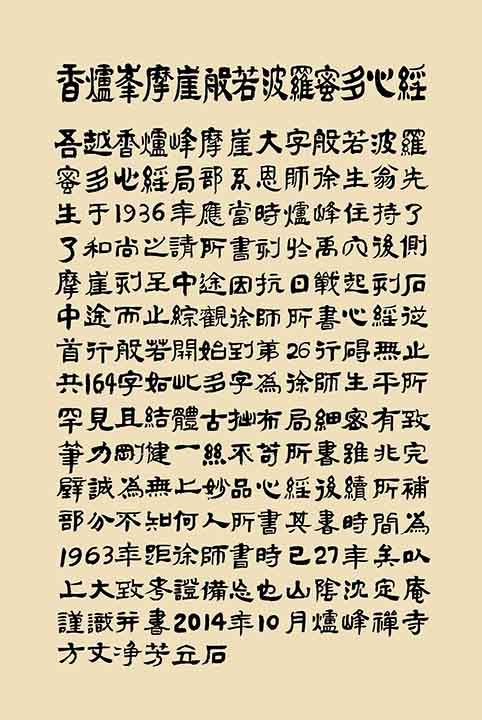 香爐峯摩崖般若波羅蜜多心經
吾越香爐峰摩崖大字般若波羅
蜜多心經局部系恩師徐生翁先
生于1936年應當時爐峰住持了
了和尚之請所書刻於禹穴後側
摩崖刻至中途因抗日戰起刻石
中途而止綜觀徐師所書心經從
首行般若開始到第26行碍無止
共164字如此多字為徐師生平所
罕見且結體古拙布局細密有致
筆力剛健一絲不苟所書雖非完
璧誠為無上妙品心經後續所補
部分不知何人所書其書時間為
1963年距徐師書時已27年矣以
上大致考證備忘也山陰沈定庵
謹識并書2014年10月爐峰禪寺
方丈净芳立石